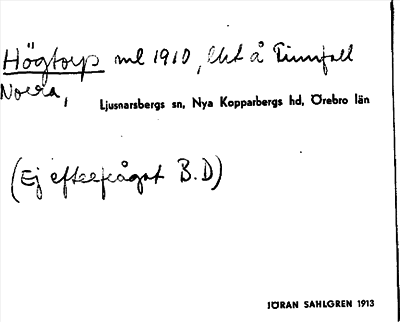 Högtorp ml 1910, lht å Finnfall
Norra,
Ljusnarsbergs sn, Nya Kopparbergs hd, Örebro län
(Ej efterfrågat B.D)
JÖRAN SAHLGREN 1913